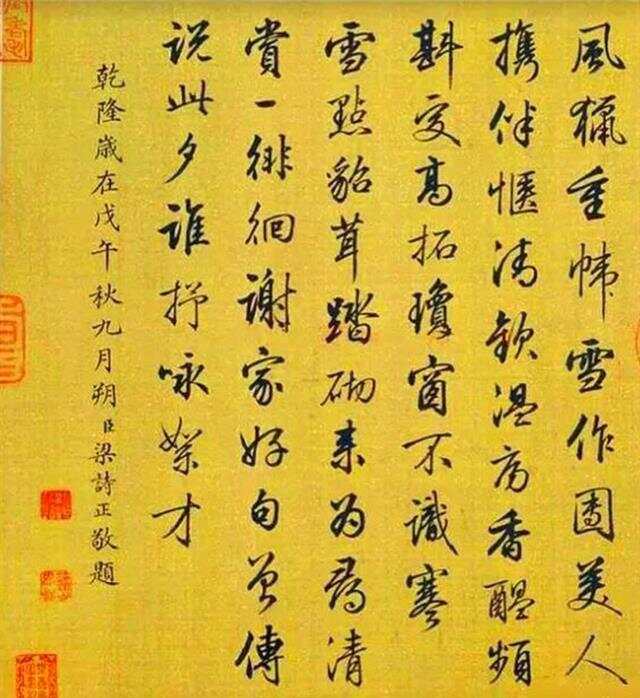 風獵重幃雪作團美人
携伴愜清歡温房香醖頻
斟更高拓瓊窗不識寒
雪點貂茸踏砌来为尋清
賞一徘徊謝家好句曾傳
说此夕誰抒咏絮才
乾隆歲在戊午秋九月朔臣梁詩正敬題